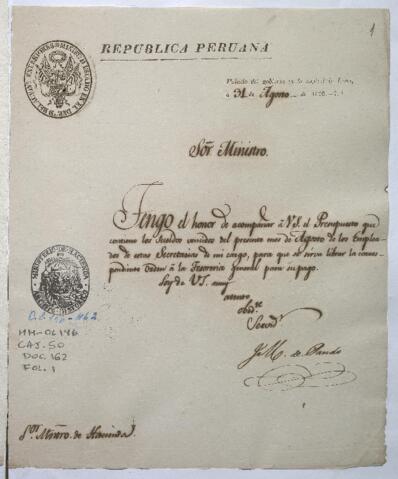 1
REPUBLICA PERUANA
Palacio del gobierno en la capital de Lima,
á 31 de Agosto de 18
Sōr. Ministro.
Tengo el honor de acompañar à V.S. el Presupuesto que
contiene los Sueldos vencidos del presente mes de Agosto de los Emplea-
dos de estas Secretarias de mi cargo, para que se sirva librar la corres-
pondiente orden à la Tesoreria general para su pago.
Soy de V.S. muy
atento
obd.te
Servd.r
J. M. de Pando
MINISTERIO DE HACIENDA
O.L. 146-162
MM-OL 146
CAJ. 50
DOC. 162
FOL. 1
S.or Mntro. de Hacienda.